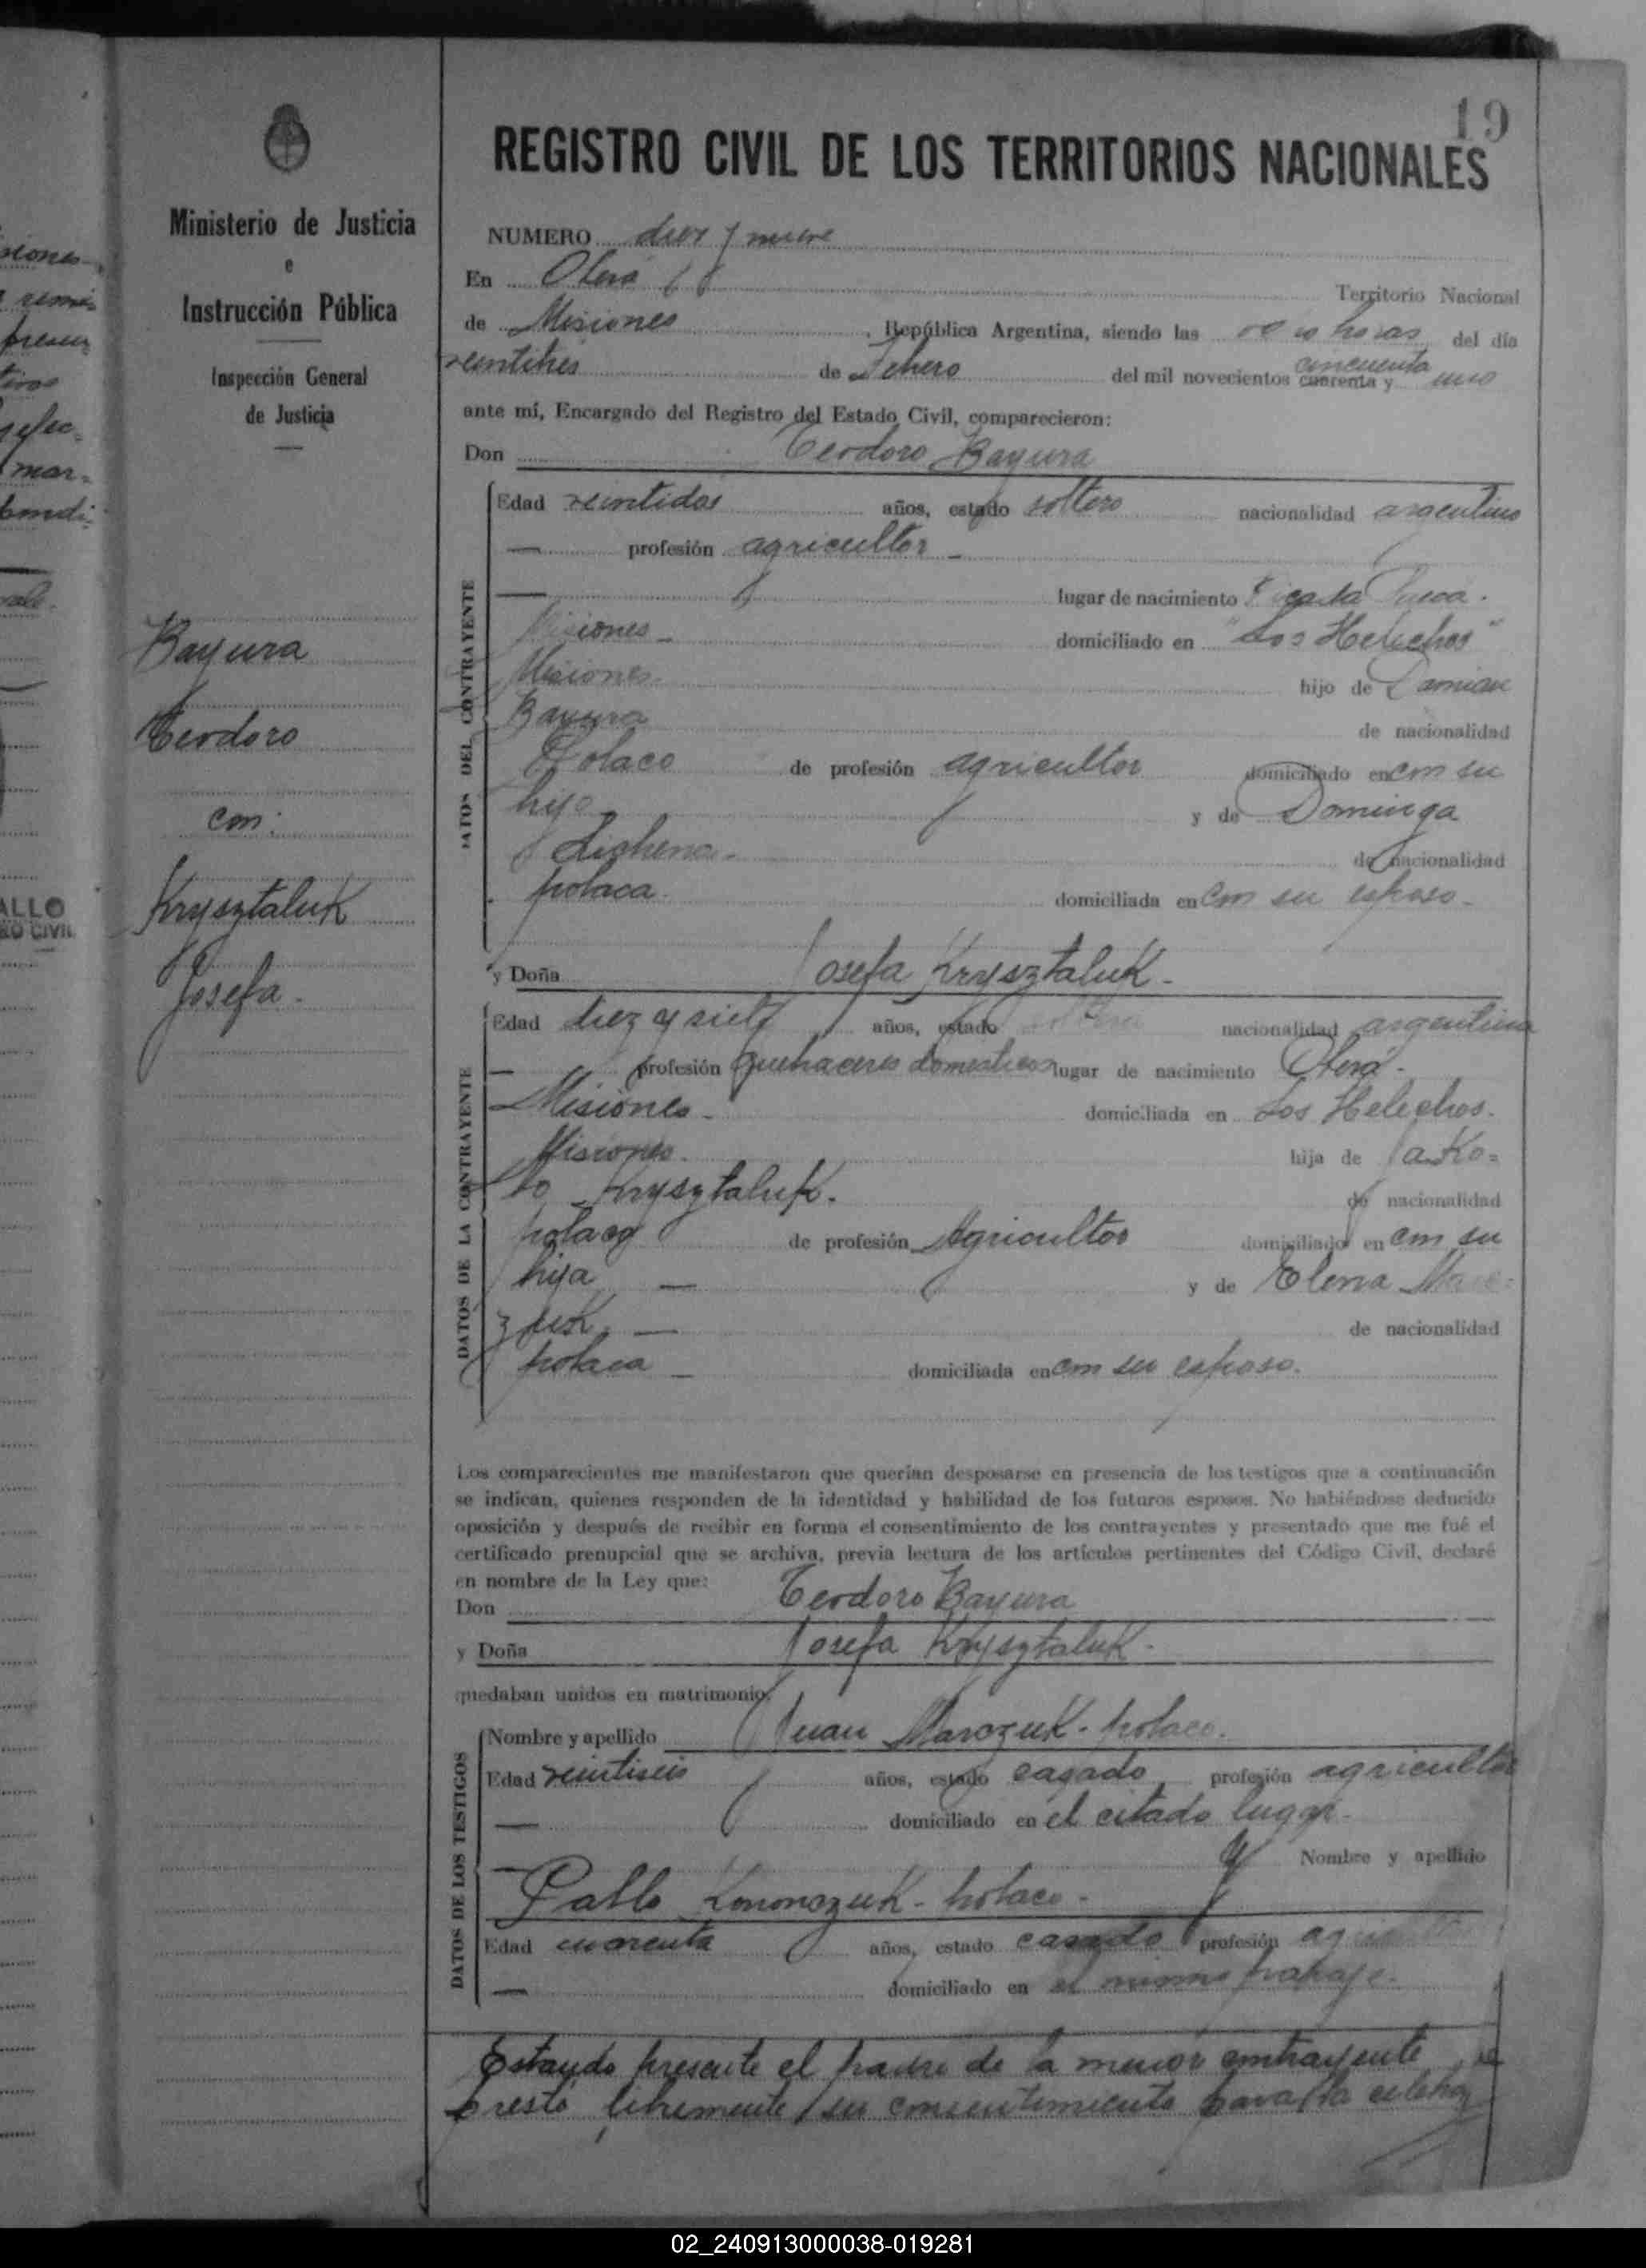 19
REGISTRO CIVIL DE LOS TERRITORIOS NACIONALES
Ministerio de Justicia
e
Instrucción Pública
Inspección General
de Justicia
Bayura
Teodoro
con:
Krysztaluk
Josefa.
NUMERO diez y nueve
En Oberá Territorio Nacional
de Misiones, República Argentina, siendo las horas del día
veintitres de del mil novecientos cuarenta y cincuenta uno
ante mí, Encargado del Registro del Estado Civil, comparecieron:
Don Teodoro Bayura
DATOS DEL CONTRAYENTE
Edad veintidos años, estado soltero nacionalidad argentino
— profesión agricultor —
— lugar de nacimiento Picada
Misiones — domiciliado en "Los Helechos"
Misiones. hijo de Damian
Bayura de nacionalidad
Polaco de profesión agricultor domiciliado en con su
hijo y de Dominga
de nacionalidad
polaca. domiciliada en con su esposo —
y Doña Josefa Krysztaluk —
DATOS DE LA CONTRAYENTE
Edad diez y siete años, estado soltera nacionalidad argentina
— profesión quehaceres domesticos lugar de nacimiento Oberá.
Misiones — domiciliada en Los Helechos.
Misiones. hija de Jako=
bo Krysztaluk. de nacionalidad
polaco de profesión Agricultor domiciliado en con su
hija — y de Elena
zuk — de nacionalidad
polaca — domiciliada en con su esposo.
Los comparecientes me manifestaron que querían desposarse en presencia de los testigos que a continuación
se indican, quienes responden de la identidad y habilidad de los futuros esposos. No habiéndose deducido
oposición y después de recibir en forma el consentimiento de los contrayentes y presentado que me fué el
certificado prenupcial que se archiva, previa lectura de los artículos pertinentes del Código Civil, declaré
en nombre de la Ley que:
Don Teodoro Bayura
y Doña Josefa Krysztaluk —
quedaban unidos en matrimonio.
DATOS DE LOS TESTIGOS
Nombre y apellido Juan Marczuk - polaco.
Edad veintiseis años, estado casado profesión agricultor
— domiciliado en el citado lugar —
— y Nombre y apellido
Pablo Kononczuk - polaco -
Edad cuarenta años, estado casado profesión
— domiciliado en el mismo paraje.
Estando presente el padre de la menor contrayente
prestó libremente su consentimiento para la
02_240913000038-019281